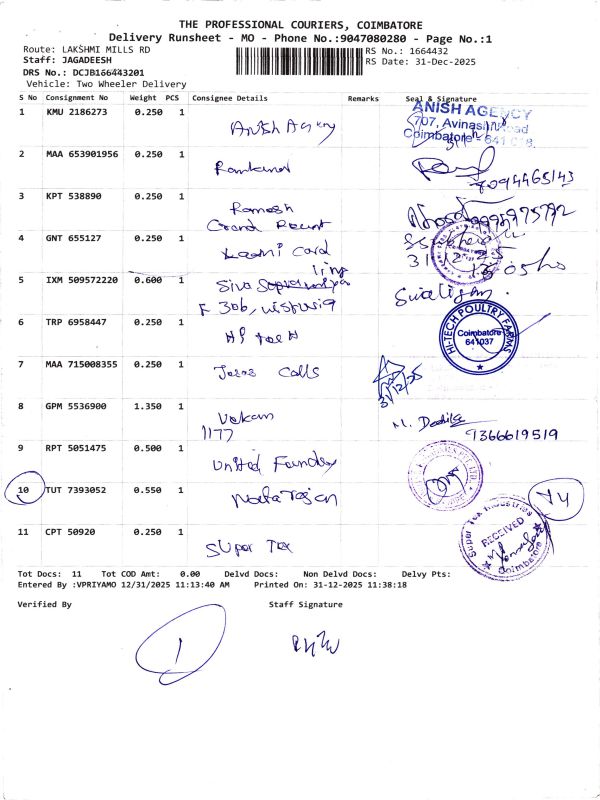 THE PROFESSIONAL COURIERS, COIMBATORE
Delivery Runsheet - MO - Phone No.:9047080280 - Page No.:1
Route: LAKSHMI MILLS RD
RS No.: 1664432
Staff: JAGADEESH
RS Date: 31-Dec-2025
DRS No.: DCJB166443201
Vehicle: Two Wheeler Delivery
S No Consignment No Weight PCS Consignee Details Remarks Seal & Signature
1 KMU 2186273 0.250 1 Anish Agency
ANISH AGENCY
707, Avinashi Road
Coimbatore - 641
2 MAA 653901956 0.250 1
7094465143
3 KPT 538890 0.250 1 Ramesh
Grand
4 GNT 655127 0.250 1 Laxmi Card
5 IXM 509572220 0.600 1 Siva
F 306,
6 TRP 6958447 0.250 1
HI-TECH POULTRY FARMS
Coimbatore
641037
7 MAA 715008355 0.250 1 Calls
31/12/25
8 GPM 5536900 1.350 1
1177
9366619519
9 RPT 5051475 0.500 1 United Foundry
10 TUT 7393052 0.550 1 Natarajan
74
11 CPT 50920 0.250 1 Super Tex
Super Tex Industries
RECEIVED
Coimbatore
Tot Docs: 11 Tot COD Amt: 0.00 Delvd Docs: Non Delvd Docs: Delvy Pts:
Entered By :VPRIYAMO 12/31/2025 11:13:40 AM Printed On: 31-12-2025 11:38:18
Verified By Staff Signature